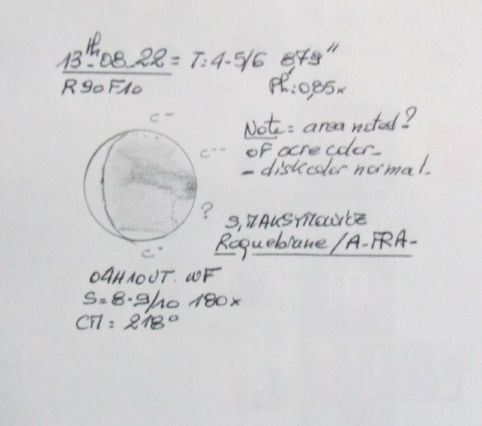 13th-08.22 = T: 4-5/6 8,79"
R90F10
Ph: 0,85x
C-
Note: area noted?
of ocre color-
C--
- disk color normal.
?
C-
Roquebrune/A-FRA-
04H10UT. WF
S=8-9/10 180x
CM= 218°